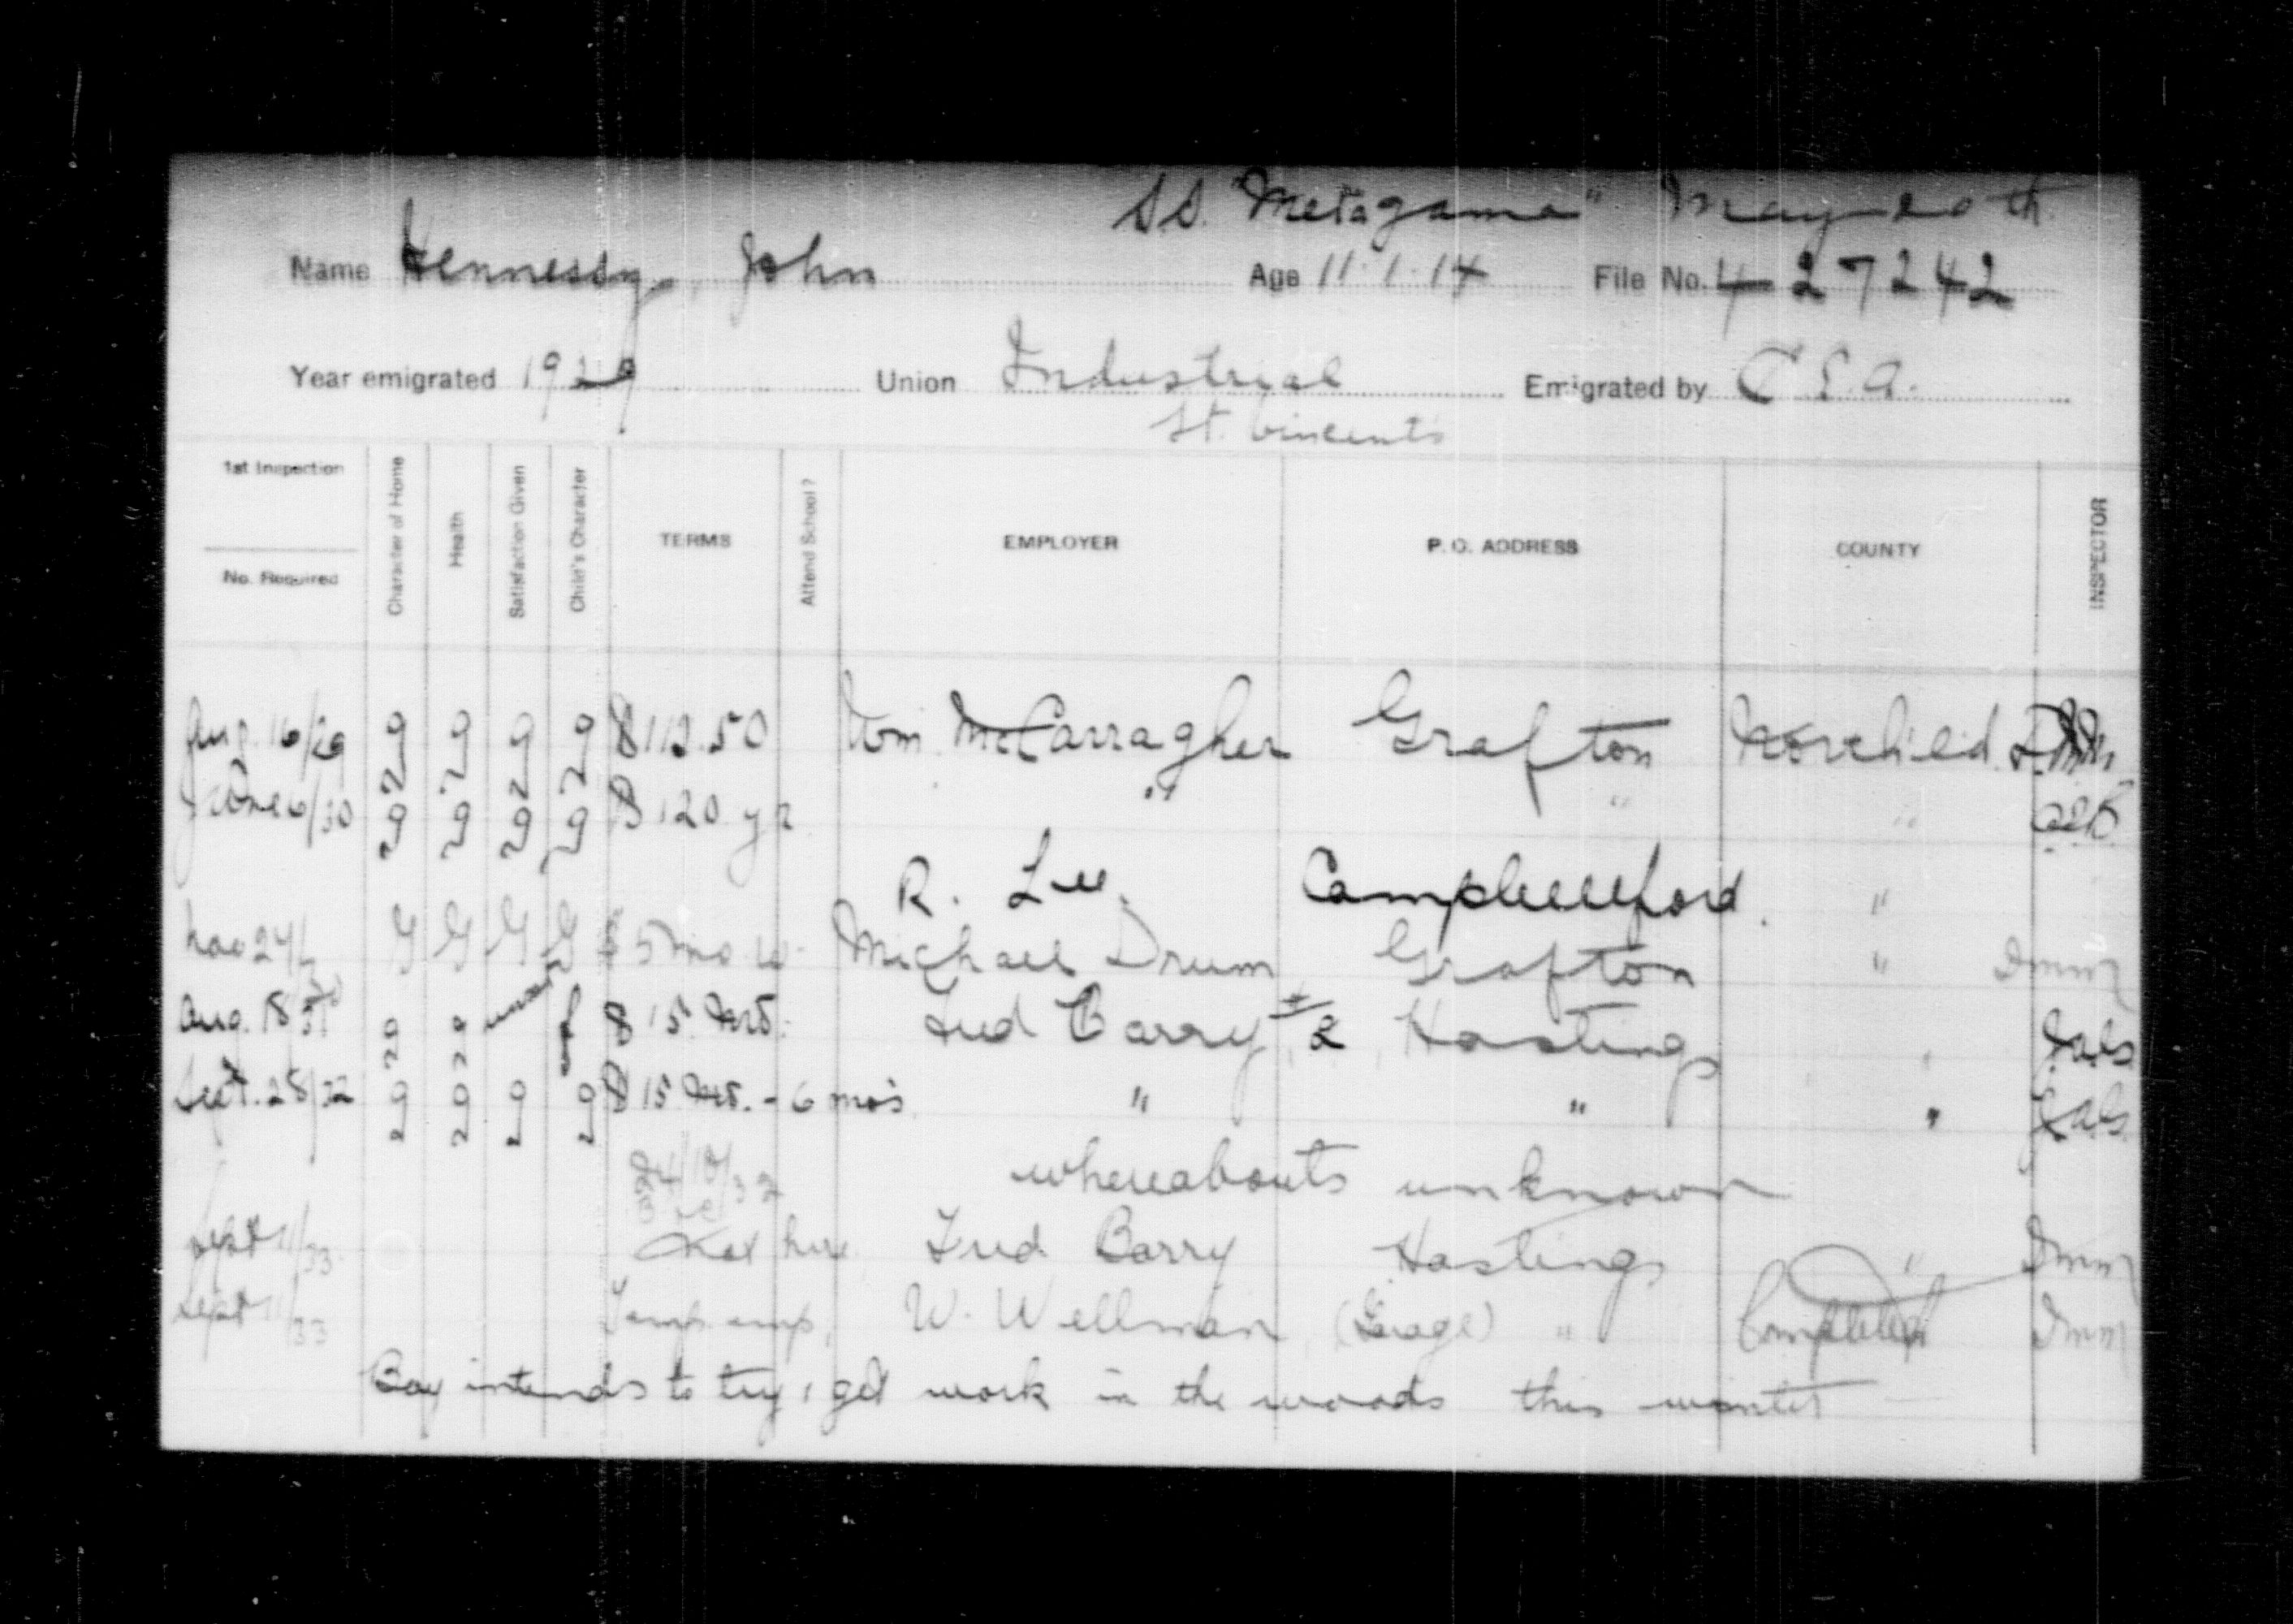 SS. "Metagama" May 20th
Name Hennessy, John Age 11.1.14 File No. 427242
Year emigrated 1929 Union Industrial Emigrated by C.E.A.
St. Vincents
1st Inspection
No. Required
Character of Home
Health
Satisfaction Given
Child's Character
TERMS
Attend School?
EMPLOYER
P. O. ADDRESS
COUNTY
INSPECTOR
Aug. 16/29 g g g g $112.50 Wm. McCarragher Grafton
June 6/30 g g g g $120 yr " " "
R. Lee. Campbellford. "
Nov 24/30 G G G G $5 mo Michael Drum Grafton "
Aug. 18/31 g g $15. Fred Barry, #2, Hastings
Sept. 28/32 g g g g $15. - 6 mo's " " "
24/10/32 whereabouts unknown
Sept 11/33 Not here Fred Barry Hastings "
Sept 11/33 Temp. emp, W. Wellman (Garage) " Completed
Boy intends to try & get work in the woods this winter